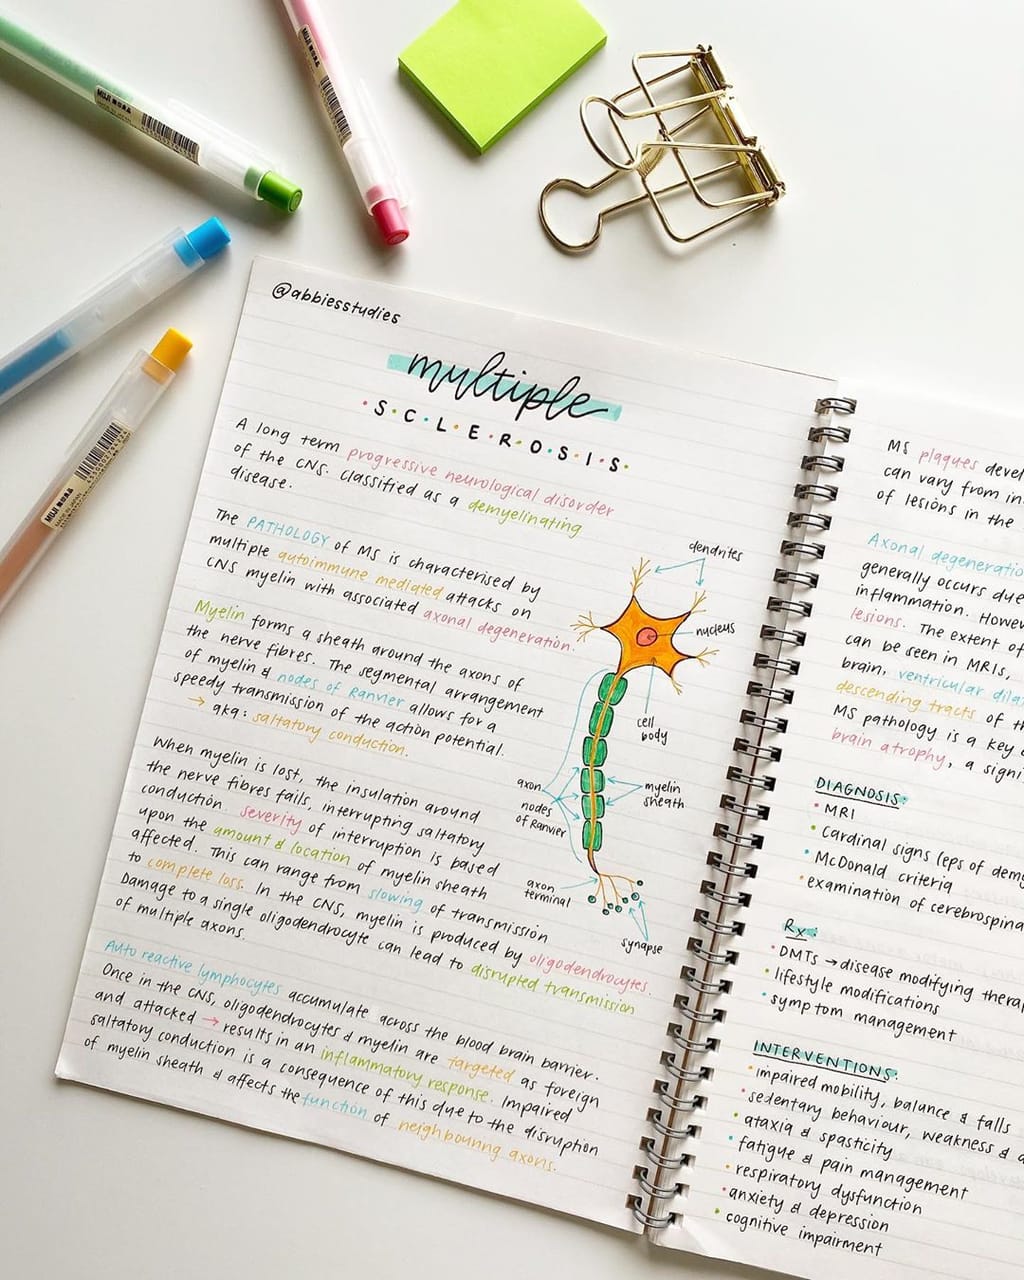 MUJI 無印良品
MUJI 無印良品
MUJI 無印良品
MADE IN JAPAN
@abbiesstudies
multiple
S.C.L.E.R.O.S.I.S.
A long term progressive neurological disorder
of the CNS. Classified as a demyelinating
disease.
The PATHOLOGY of MS is characterised by
multiple autoimmune mediated attacks on
CNS myelin with associated axonal degeneration.
Myelin forms a sheath around the axons of
the nerve fibres. The segmental arrangement
of myelin & nodes of Ranvier allows for a
speedy transmission of the action potential.
→ aka: saltatory conduction.
When myelin is lost, the insulation around
the nerve fibres fails, interrupting saltatory
conduction. Severity of interruption is based
upon the amount & location of myelin sheath
affected. This can range from slowing of transmission
to complete loss. In the CNS, myelin is produced by oligodendrocytes.
Damage to a single oligodendrocyte can lead to disrupted transmission
of multiple axons.
Auto reactive lymphocytes accumulate across the blood brain barrier.
Once in the CNS, oligodendrocytes & myelin are targeted as foreign
and attacked → results in an inflammatory response. Impaired
saltatory conduction is a consequence of this due to the disruption
of myelin sheath & affects the function of neighbouring axons.
dendrites
nucleus
cell
body
axon
nodes
of Ranvier
myelin
sheath
axon
terminal
synapse
MS plaques devel
can vary from in
of lesions in the
Axonal degeneratio
generally occurs due
inflammation. Howev
lesions. The extent of
can be seen in MRIs,
brain, ventricular dila
descending tracts of th
MS pathology is a key
brain atrophy, a signi
DIAGNOSIS:
• MRI
• cardinal signs (eps of demy
• McDonald criteria
• examination of cerebrospina
Rx:
• DMTs → disease modifying therap
• lifestyle modifications
• symptom management
INTERVENTIONS:
• impaired mobility, balance & falls
• sedentary behaviour, weakness &
• ataxia & spasticity
• fatigue & pain management
• respiratory dysfunction
• anxiety & depression
• cognitive impairment